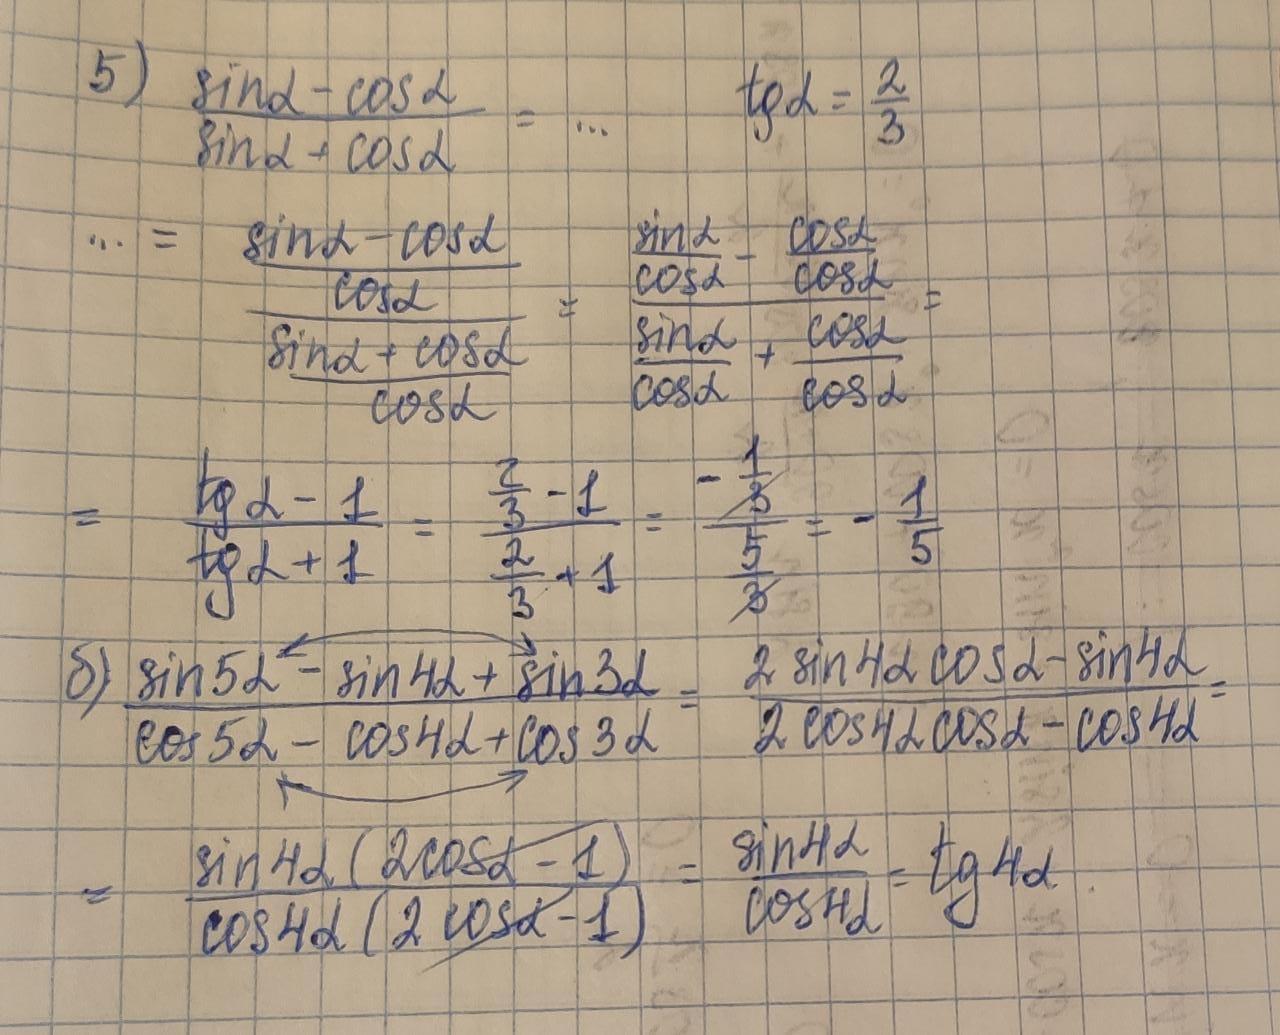 5) (sinα - cosα)/(sinα + cosα) = ... tgα = 2/3
... = ((sinα - cosα)/cosα)/((sinα + cosα)/cosα) = (sinα/cosα - cosα/cosα)/(sinα/cosα + cosα/cosα) =
= (tgα - 1)/(tgα + 1) = (2/3 - 1)/(2/3 + 1) = (-1/3)/(5/3) = -1/5
б) (sin5α - sin4α + sin3α)/(cos5α - cos4α + cos3α) = (2 sin4α cosα - sin4α)/(2 cos4α cosα - cos4α) =
= (sin4α (2cosα - 1))/(cos4α (2cosα - 1)) = sin4α/cos4α = tg4α